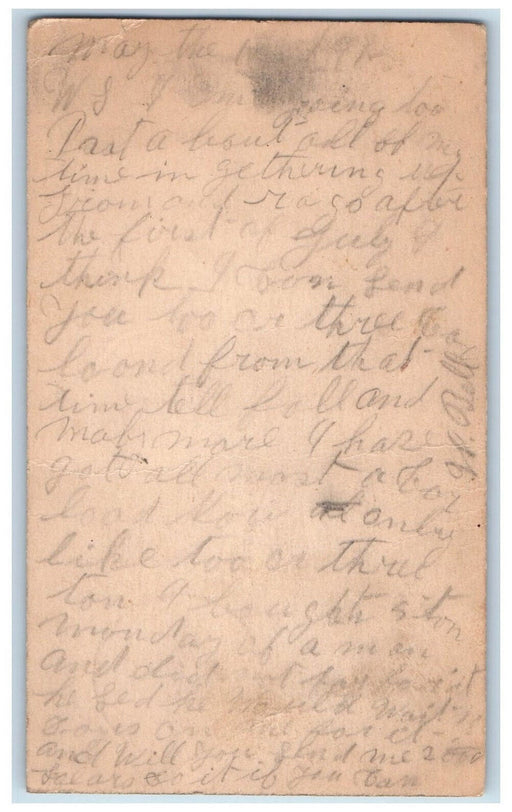 May the 1
W S I am going too
Put about all of my
time in gethering up
iron and rags after
the first of July I
think I Can Send
you too or three Ca
loond from that
time tell fall and
mabe more I have
got all most a Car
load Now it onley
like too or three
ton I bought 5 ton
monday of a man
and did not pay for it
he sed he would wait
on me for it
and Will you Send me 2 000
it if you Can